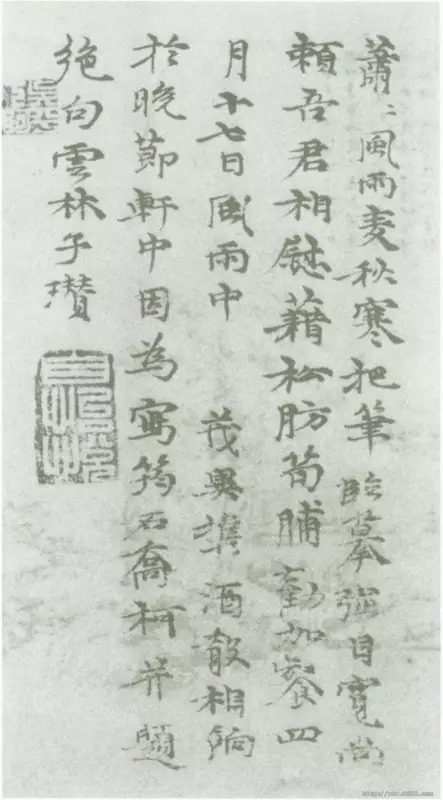 蕭〻風雨麦秋寒把筆臨摹强自寬尚
賴吾君相慰藉松肪筍脯勸加餐四
月十七日風雨中 茂攜酒殽相餉
於晚節軒中因為寫筠石喬柯并題
絶句雲林子瓚